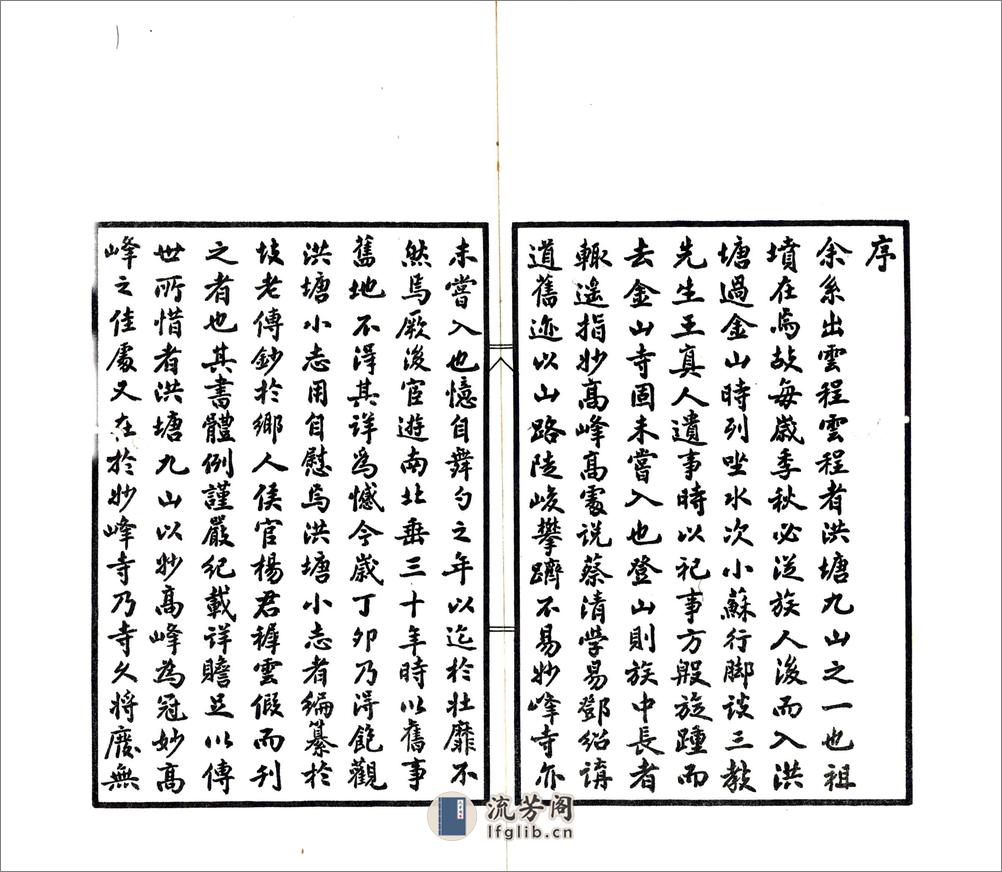 序
余系出雲程雲程者洪塘九山之一也祖
墳在焉故每歲季秋必從族人後而入洪
塘過金山時列坐水次小蘇行脚談三教
先生王真人遺事時以祀事方殷旋踵而
去金山寺固未嘗入也登山則族中長者
輒遙指妙高峰高處說蔡清學易鄧紹講
道舊迹以山路陡峻攀躋不易妙峰寺亦
未嘗入也憶自舞勺之年以迄於壯靡不
然焉厥後宦遊南北垂三十年時以舊事
舊地不得其詳為憾今歲丁卯乃得飽觀
洪塘小志用自慰焉洪塘小志者編纂於
坡老傳鈔於鄉人侯官楊君穉雲假而刊
之者也其書體例謹嚴紀載詳贍足以傳
世所惜者洪塘九山以妙高峰為冠妙高
峰之佳處又在於妙峰寺乃寺久將廢無
流芳阁
lfglib.cn